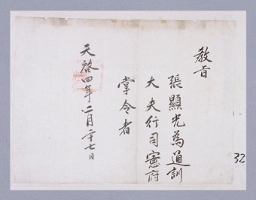 教旨
張顯光為通訓
大夫行司憲府
掌令者
天啓四年二月二十七日
32